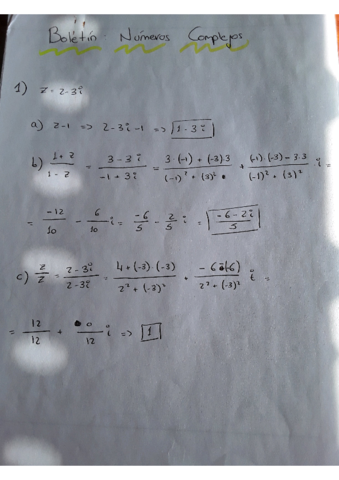 Boletín Números Complejos
1) z = 2-3i
a) z-1 => 2-3i-1 => 1-3i
b) 1+z / 1-z = 3-3i / -1+3i = 3·(-1)+(-3)·3 / (-1)²+(3)² + (-1)·(-3)-3·3 / (-1)²+(3)² i =
= -12/10 - 6/10 i = -6/5 - 2/5 i = -6-2i / 5
c) z/z = 2-3i / 2-3i = 4+(-3)·(-3) / 2²+(-3)² + / 2²+(-3)² i =
= 12/12 + 0/12 i => 1